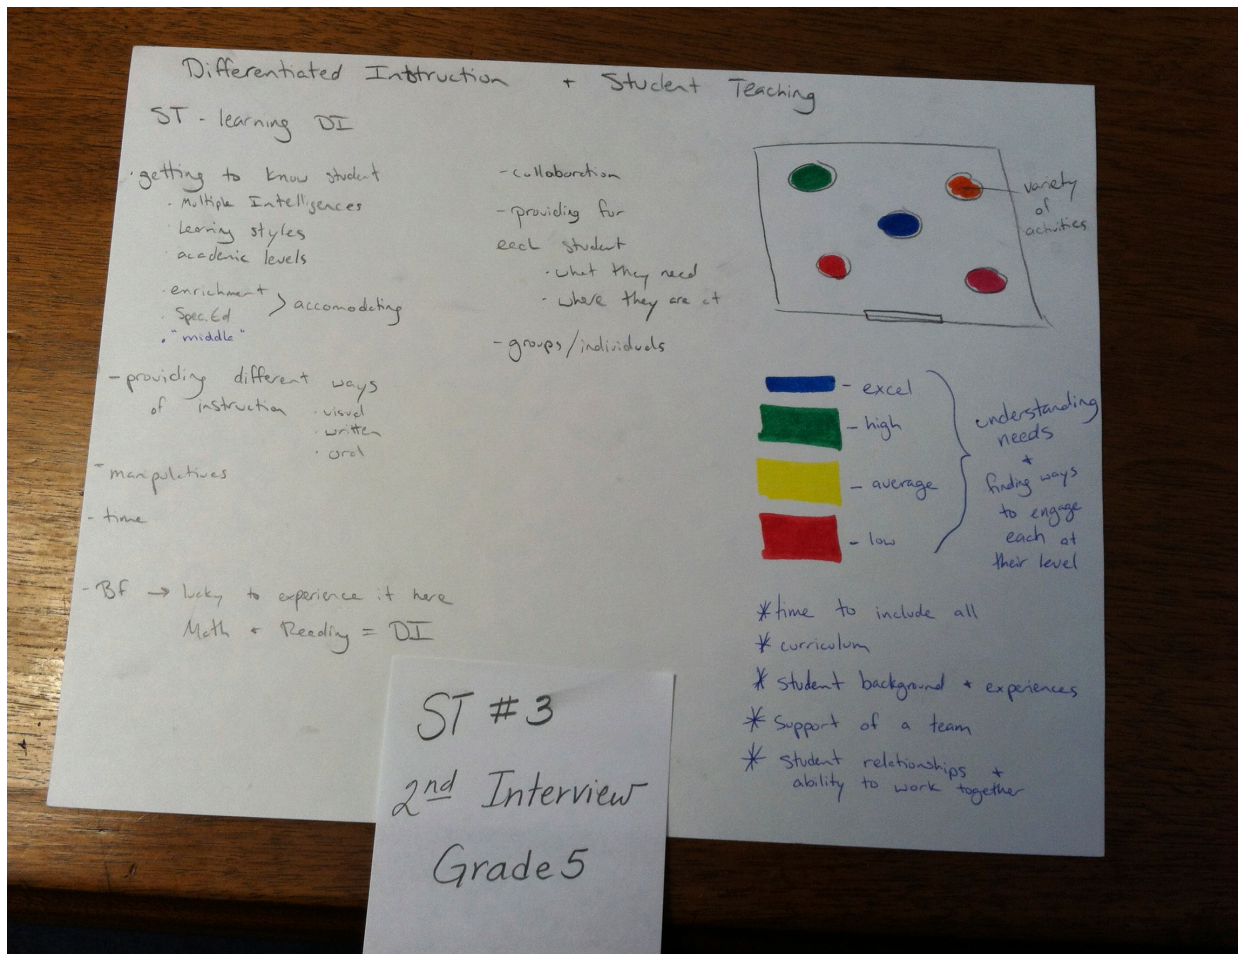 Differentiated Instruction + Student Teaching
ST - learning DI
· getting to know student
· Multiple Intelligences
· Learning styles
· academic levels
· enrichment
· Spec. Ed
> accomodating
· "middle"
- providing different ways
of instruction
· visual
· written
· oral
- manipulatives
- time
- Bf → lucky to experience it here
Math + Reading = DI
- collaboration
- providing for
each student
· what they need
· where they are at
- groups/individuals
variety
of
activities
- excel
- high
- average
- low
understanding
needs
+
finding ways
to engage
each at
their level
* time to include all
* curriculum
* student background + experiences
* support of a team
* student relationships +
ability to work together
ST #3
2nd Interview
Grade 5